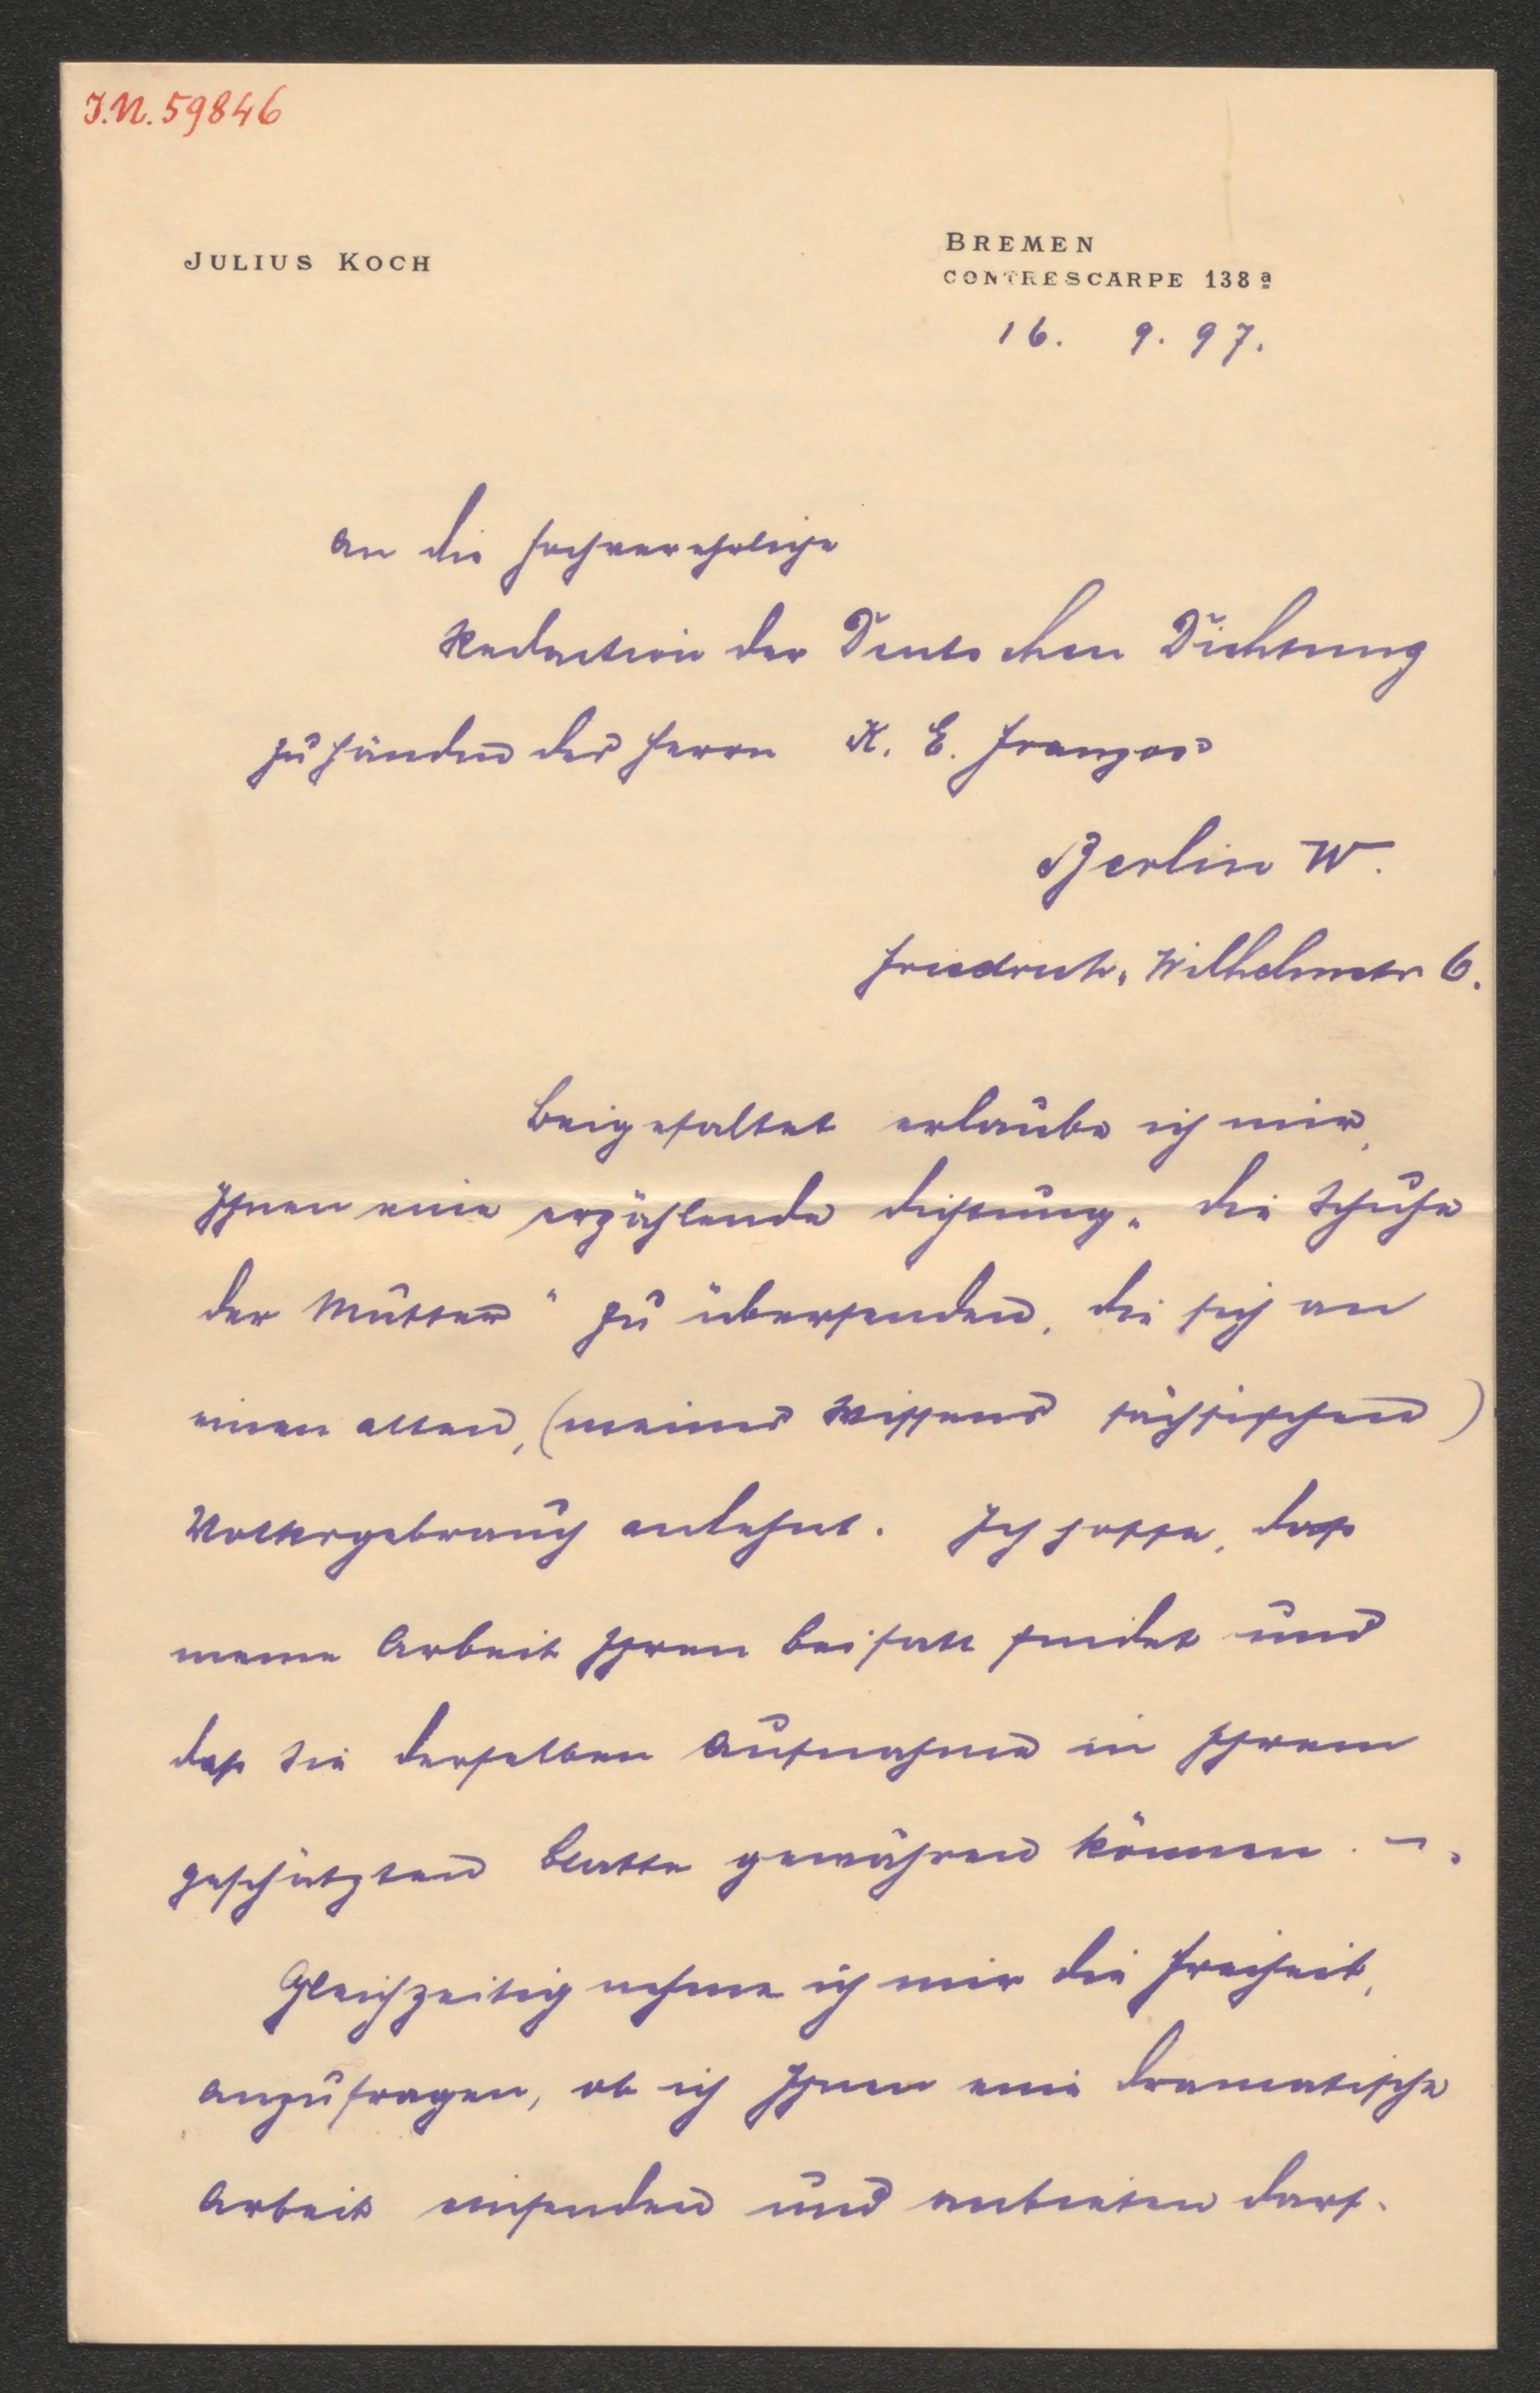 J.N. 59846
JULIUS KOCH
BREMEN
CONTRESCARPE 138a
16. 9. 97.
An die hochverehrliche
Redaction der Deutschen Dichtung
zu Händen des Herrn K. E. Franzos
Berlin W.
Friedrich-Wilhelmstr 6.
Beigefaltet erlaube ich mir,
Ihnen eine erzählende Dichtung „Die Schuhe
der Mutter" zu übersenden, die sich an
einen alten, (meines Wissens sächsischen)
Volksgebrauch anlehnt. Ich hoffe, daß
meine Arbeit Ihren Beifall findet und
daß Sie derselben Aufnahme in Ihrem
geschätzten Blatte gewähren können. –.
Gleichzeitig nehme ich mir die Freiheit,
anzufragen, ob ich Ihnen eine dramatische
Arbeit einsenden und anbieten darf.